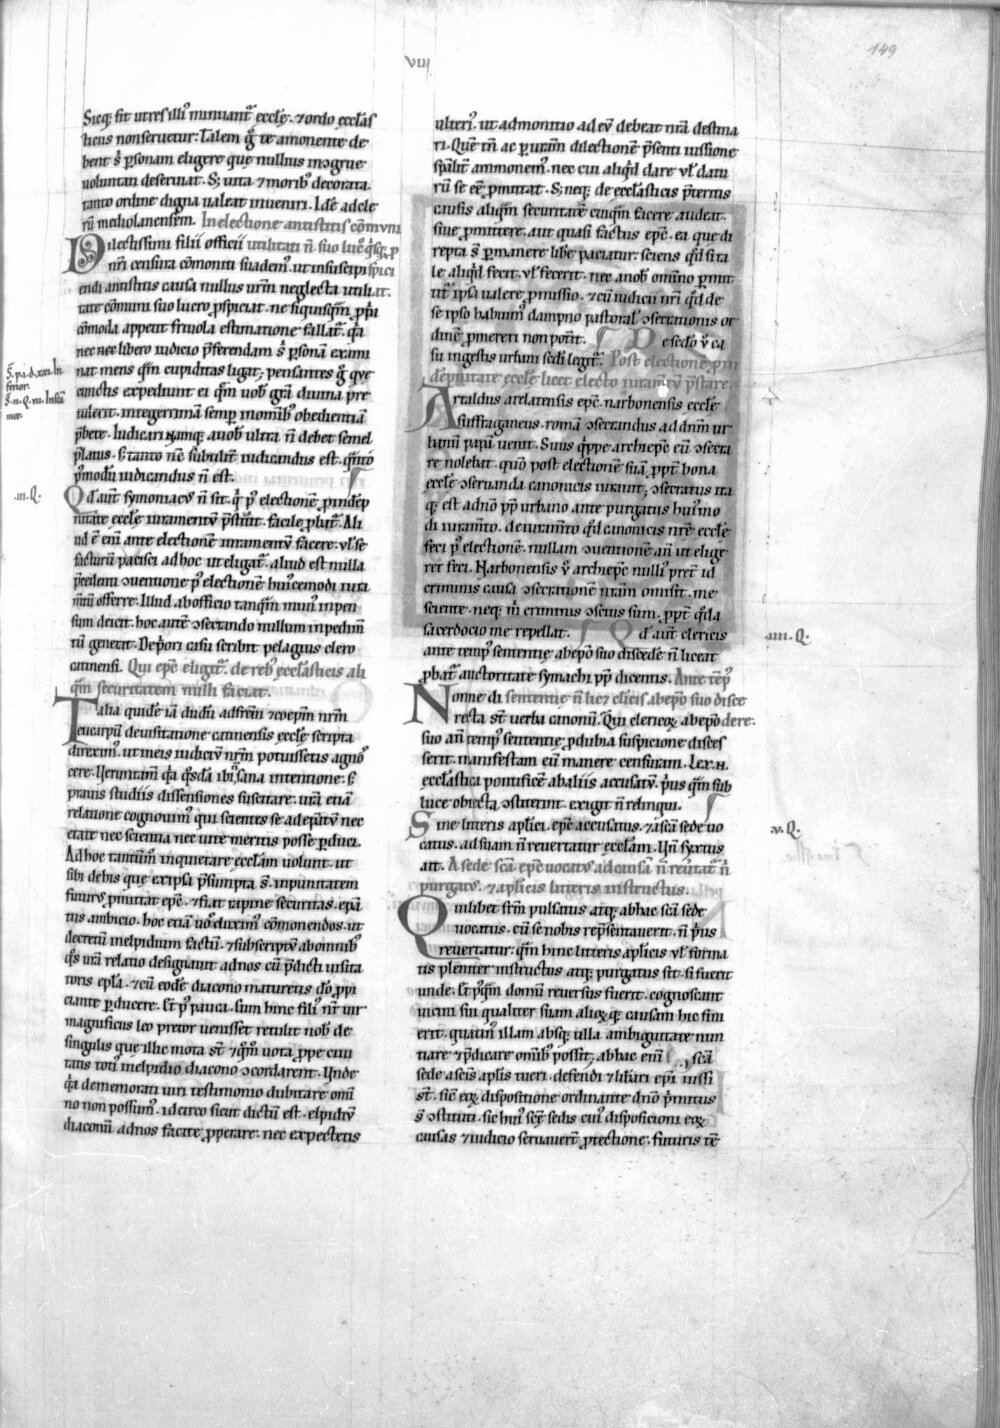 VIII
149
Sicq; sit ut res illi' minuant' eccl'e. 7 ordo eccl'as
ticus non servetur: Talem g° te amonente de
bent s; p'sonam eligere que nullius incgrue
voluntati deserviat. S; vita 7 morib' decorata.
tanto ordine digna valeat inveniri. Idē ad cle
rū mediolanensem. In electione antistitis cōmuni
Dilectissimi filii officii utilitati n̄ suo luc° q'sq; p
nr̄i censura cōmoniti suadem'. ut in suscipi spici
endi antistitis causa nullus urm̄ neglecta utilit.
tate cōmuni suo lucro p'spiciat. ne si quisq̄m p'pi
cōmoda appetit frivola estimatione fallat'. q̄a
nec nec libero iudicio p'ferendam s; p'sonā exami
nat mens q̄m cupiditas ligat; pensantes g° que
cunctis expediunt ei q̄m vob' grā divina pre
tulerit. integerrimā semp in omnib' obedientiā
p'bete. Iudicari namq; a vob' ultra n̄ debet semel
p'latus. S; tanto n̄c subtilit' iudicandus est. q̄nto
p'modū iudicandus n̄ est.
.iii.Q.
Q d' aut' symoniacū n̄ sit. q' p' electionē p indēp
nitate eccl'e iuramentū p'stit'. facile p'bat'. Ali
ud ē eni' ante electionē iuramentū facere. vl' se
facturū pacisci ad hoc ut eligat'. aliud est nulla
p'cedenti ɔventione p' electionē hui'cemodi iura
m̄tū offerre. Illud ab officio tanq̄m mun' inpen
sum deicit. hoc aute' ɔsecrando nullum inpedim̄
tū generat. De p'ori casu scribit pelagius clero
catinensi. Qui ep̄c eligit'. de reb' eccl'asticis ali
q̄m securitatem nulli faciat.
Talia quidē iā dudū ad frēm 7 coep̄m nr̄m
eucarpū de visitatione catinensis eccl'e scripta
direxim'. ut in eis iudiciū nr̄m potuissetis agno
cere. Verūtam̄ q̄a q'sdā ibi sana intentione. s;
pravis studiis dissensiones suscitare. vr̄a etiā
relatione cognovim' qui scientes se ad ep̄atū nec
etatis nec scientia nec vite meritis posse p'duci.
Ad hoc tantūm inquietare eccl'am volunt. ut
sibi debis que ex ipsa p'sumpta s;. inpunitatem
futur' p'mittat ep̄c. 7 fiat rapine securitas. ep̄a
tus ambicio. hoc etiā vo' duxim' cōmonendos. ut
decretū in elpidium factū. 7 subscriptū ab omnib'
q's vr̄a relatio designavit ad nos cū p'dicti visita
toris ep'la. 7 cū eodē diacono maturetis dō p'pi
ciante p'ducere. Et p' pauca. Cum hinc fili' nr̄ vir
magnificus leo pretor venisset retulit nob' de
singulis que illic mota st̄ 7 q̄m vota p'pe civi
tatis toti' in elpidio diacono ɔcordarent. Unde
q̄a de memorati viri testimonio dubitare omi
no non possum'. idcirco sicut dictū est. elpidiū
diaconū ad nos facite p'perare. nec expectetis
ulteri'. ut admonitio ad ev' debeat nr̄a destina
ri. Quē tn̄ ac p' vr̄am dilectionē p'senti iussione
sp̄alit' ammonem'. nec cui aliq'd dare vl' datu
rū se ee' p'mittat. S; neq; de eccl'asticis p'teritis
causis aliq̄m securitatē cuiq̄m facere audeat.
sive p'mittere. aut quasi factus ep̄c. ea que di
repta s; p'manere libe' paciatur: sciens q'd si ta
le aliq'd fecit. vl' fecerit. nec a nob' omīno p'mit
tit' ipsa valere p'missio. 7 cū iudicii nr̄i q'd de
se ipso habuim' dampno pastoral' ɔsecrationis or
dinē p'mereri non pot'it. De sedō v' ca
su ingestis urbani sedi legit'. Post electionē p in
dēpnitate eccl'e licet electo iuram̄tū p'stare.
Artaldus arelatensis ep̄c. narbonensis eccl'e
suffraganeus. romā ɔsecrandus ad dn̄m ur
banū papā venit. Suus q'ppe archiep̄c eū ɔsecra
re nolebat. quō post electionē suā p'pt' bona
eccl'e ɔservanda canonicis iuravit; ɔsecratus ita
q; est a dn̄o pp̄ urbano ante purgatus hui'mo
di iuram̄to. De iuram̄to q'd canonicis nr̄e eccl'e
feci p' electionē. nullam ɔventionē an̄ ut elige
rer feci. Narbonensis v' archiep̄c nulli' preti' id
criminis causa ɔsecrationē vr̄am omisit. me
sciente. neq; m' criminis ɔscius sum. p'pt' q'd a
sacerdocio me repellat. Q d' aut' clericis
.iiii.Q.
ante temp' sententie ab ep̄o suo discede' n̄ liceat
p'bat' auctoritate symachi pp̄ dicentis. Ante tēp'
Nonne di sententie n̄ lic; cl'icis ab ep̄o suo disce
recta st̄ verba canonū. Qui clericoꝝ ab ep̄o dere:
suo an̄ temp' sententie p' dubia suspicione disces
serit. manifestam eū manere censuram. Lex. n.
eccl'astica pontificē ab aliis accusatū. p'us q̄m sub
luce obiecta ɔstituūt. exigit n̄ relinqui.
Sine litteris ap'lici. ep̄c accusatus. 7 a scā sede vo
.v.Q.
catus. ad suam n̄ revertatur eccl'am. Un̄ syxtus
ait. A sede scā ep̄c vocat' ad causā n̄ rev'tat' n̄
purgat'. 7 ap'licis litteris instructus.
Quilibet frm̄ pulsatus atq; ab hac scā sede
vocatus. cū se nobis rep'sentaverit. n̄ p'us
revertatur: q̄m hinc litteris ap'licis vl' forma
tis pleniter instructus atq; purgatus sit. si fuerit
unde. Et p'q̄m domū reversus fuerit. cognoscant
vicini sui qualiter suam alioꝝq; causam hic fini
erit. quatin' illam absq; ulla ambiguitate nun
tiare 7 p'dicare om̄ib' possit; ab hac eni' scā
sede a scis ap'lis tueri. defendi 7 lib'ari ep̄i iussi
st̄. sic' eoꝝ dispositione ordinante dn̄o p'mitus
s; ɔstituti. sic hui' scē sedis cui' disposicioni eoꝝ
causas 7 iudicio servaverūt p'tectione. futuris tē